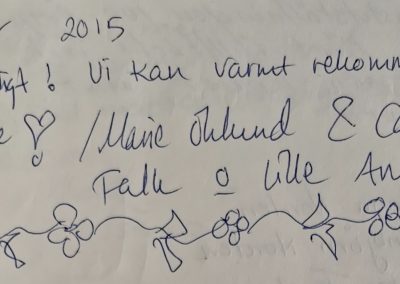 2015
igt! Vi kan varmt rekomm
e /Marie Öhlund & Ca
Falk o lille An